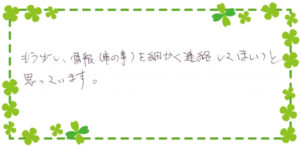 もう少し、情報(市の事)を細かく連絡してほしいと
思っています。